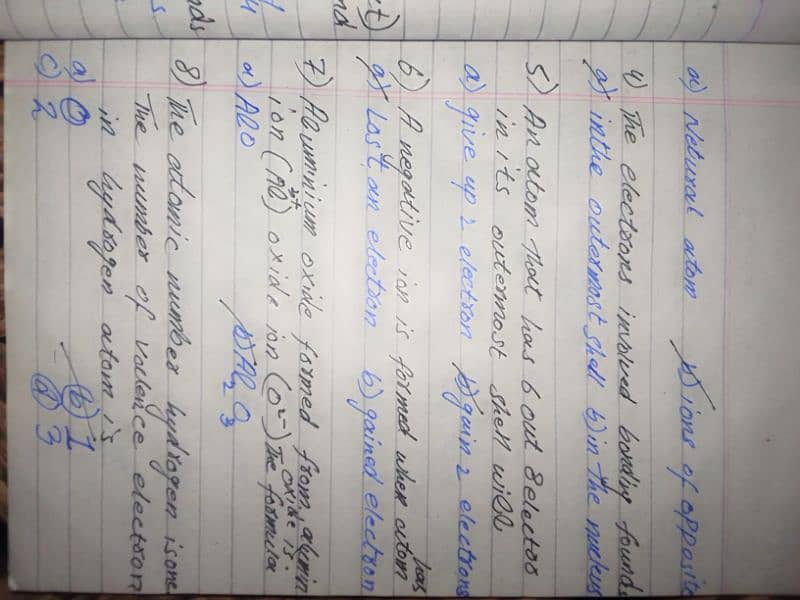 a) Netural atom b) ions of opposite
4) The electrons involved bonding founds
a) in the outermost shell b) in the nucleus
5) An atom that has 6 out 8 electro
in its outermost shell will
a) give up 2 electron b) gain 2 electrons
6) A negative ion is formed when atom has
a) Lost an electron b) gained electron
7) Aluminium oxide formed from alumin
ion (Al3+) oxide ion (O2-) The formula oxide is
a) AlO b) Al2O3
8) The atomic number hydrogen is one
The number of valence electron
in hydrogen atom is
a) 0 (b) 1
c) 2 (d) 3